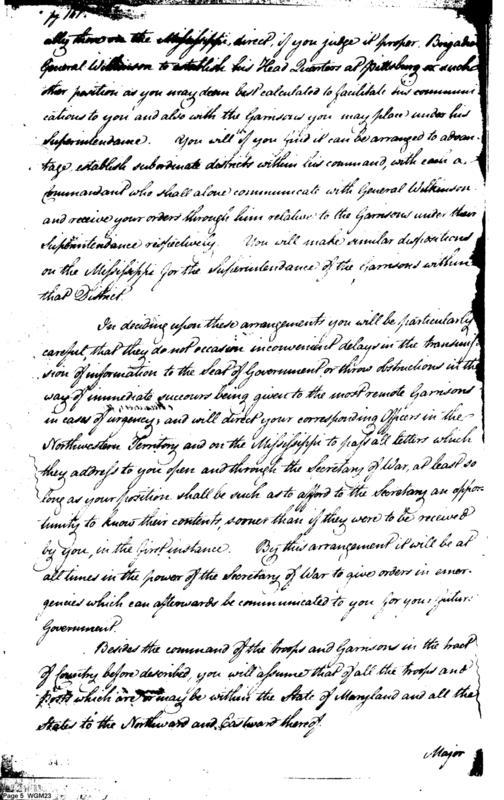 ally then on the Mississippi, direct, if you judge it proper, Brigadier
General Wilkinson to establish his Head Quarters at Pittsburg or such
other position as you may deem best calculated to facilitate his communi-
cations to you and also with the Garrisons you may place under his
Superintendance. You will if you find it can be arranged to advan-
tage, establish subordinate districts within his command, with each a
Commandant who shall alone communicate with General Wilkinson
and receive your orders through him relative to the Garrisons under their
Superintendance respectively. You will make similar dispositions
on the Mississippi for the Superintendance of the Garrisons within
that District.
In deciding upon these arrangements you will be particularly
careful that they do not occasion inconvenient delays in the transmis-
sion of information to the Seat of Government or throw obstructions in the
way of immediate succours being given to the most remote Garrisons
in cases of urgency; and will direct your corresponding Officers in the
Northwestern Territory and on the Mississippi to pass all letters which
they address to you open and through the Secretary of War, at least so
long as your position shall be such as to afford to the Secretary an oppor-
tunity to know their contents, sooner than if they were to be received
by you, in the first instance. By this arrangement it will be at
all times in the power of the Secretary of War to give orders in emer-
gencies which can afterwards be communicated to you for your future
Government.
Besides the command of the troops and Garrisons in the tract
of Country before described, you will assume that of all the troops and
Posts which are or may be within the State of Maryland and all the
States to the Northward and Eastward thereof.
Major
Page 5 WGM23